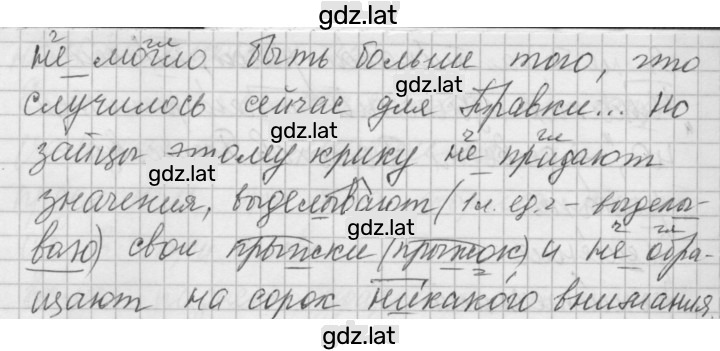 gdz.lat
не могло быть больше того, что
gdz.lat
случилось сейчас для Травки... Но
gdz.lat
зайцы этому крику не придают
gdz.lat
значения, выделывают (1 л. ед. ч – выделы-
ваю) свои прыжки (прыжок) и не обра-
щают на сорок никакого внимания.
gdz.lat